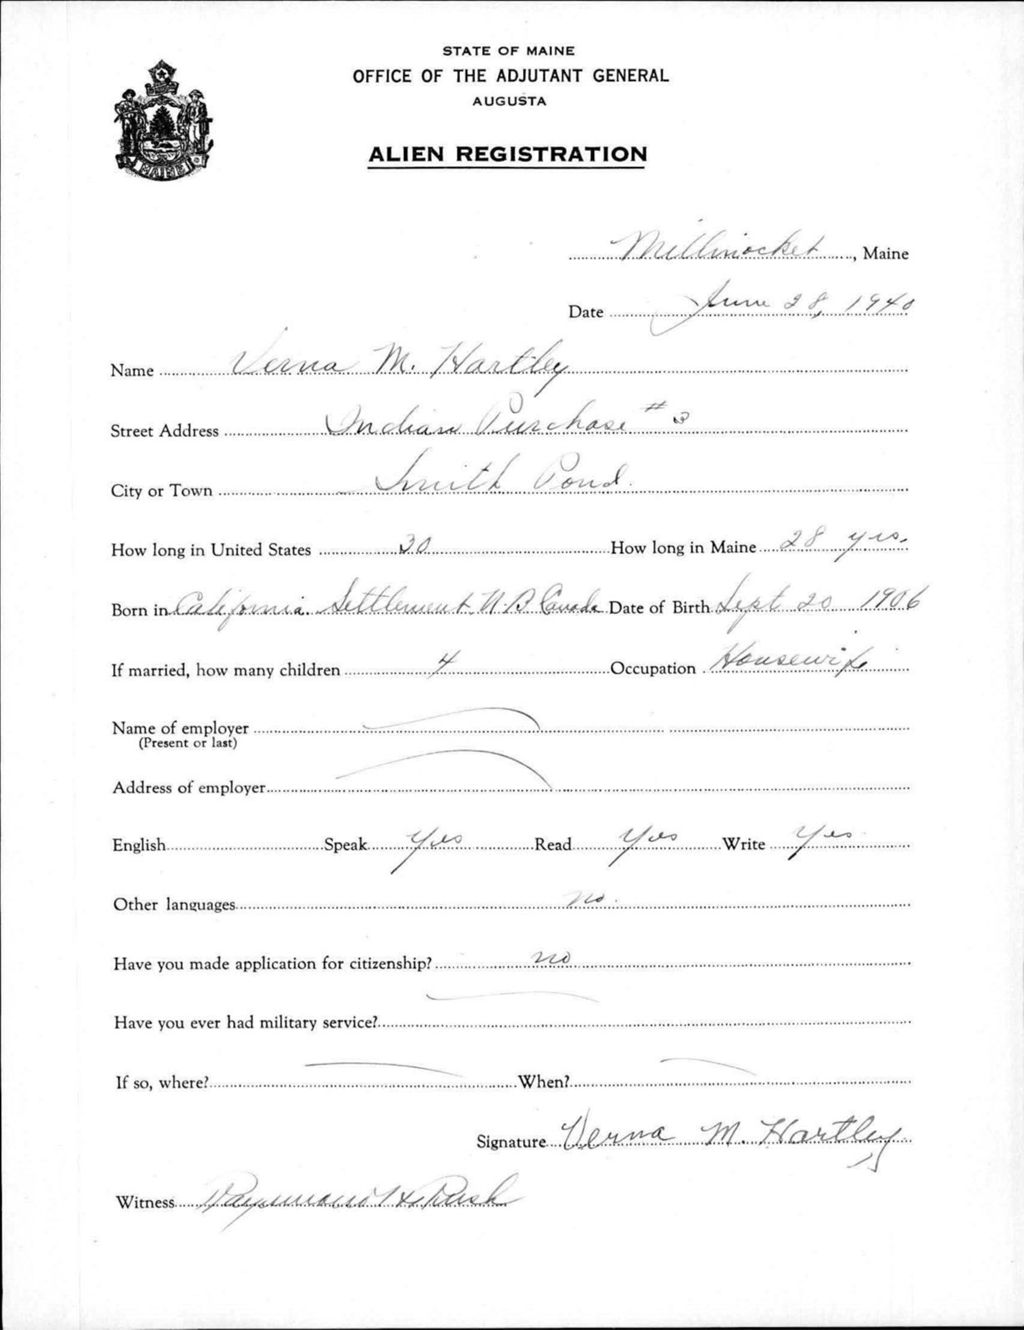 STATE OF MAINE
OFFICE OF THE ADJUTANT GENERAL
AUGUSTA
ALIEN REGISTRATION
MAINE
Millinocket, Maine
Date June 28, 1940
Name Verna M. Hartley
Street Address Indian Purchase #3
City or Town Smith Pond.
How long in United States 30 How long in Maine 28 yrs.
Born in California Settlement N B Canada Date of Birth Sept 20 1906
If married, how many children 4 Occupation Housewife
Name of employer
(Present or last)
Address of employer
English Speak Yes Read Yes Write Yes
Other languages no.
Have you made application for citizenship? no
Have you ever had military service?
If so, where? When?
Signature Verna M. Hartley
Witness Raymond H Rush